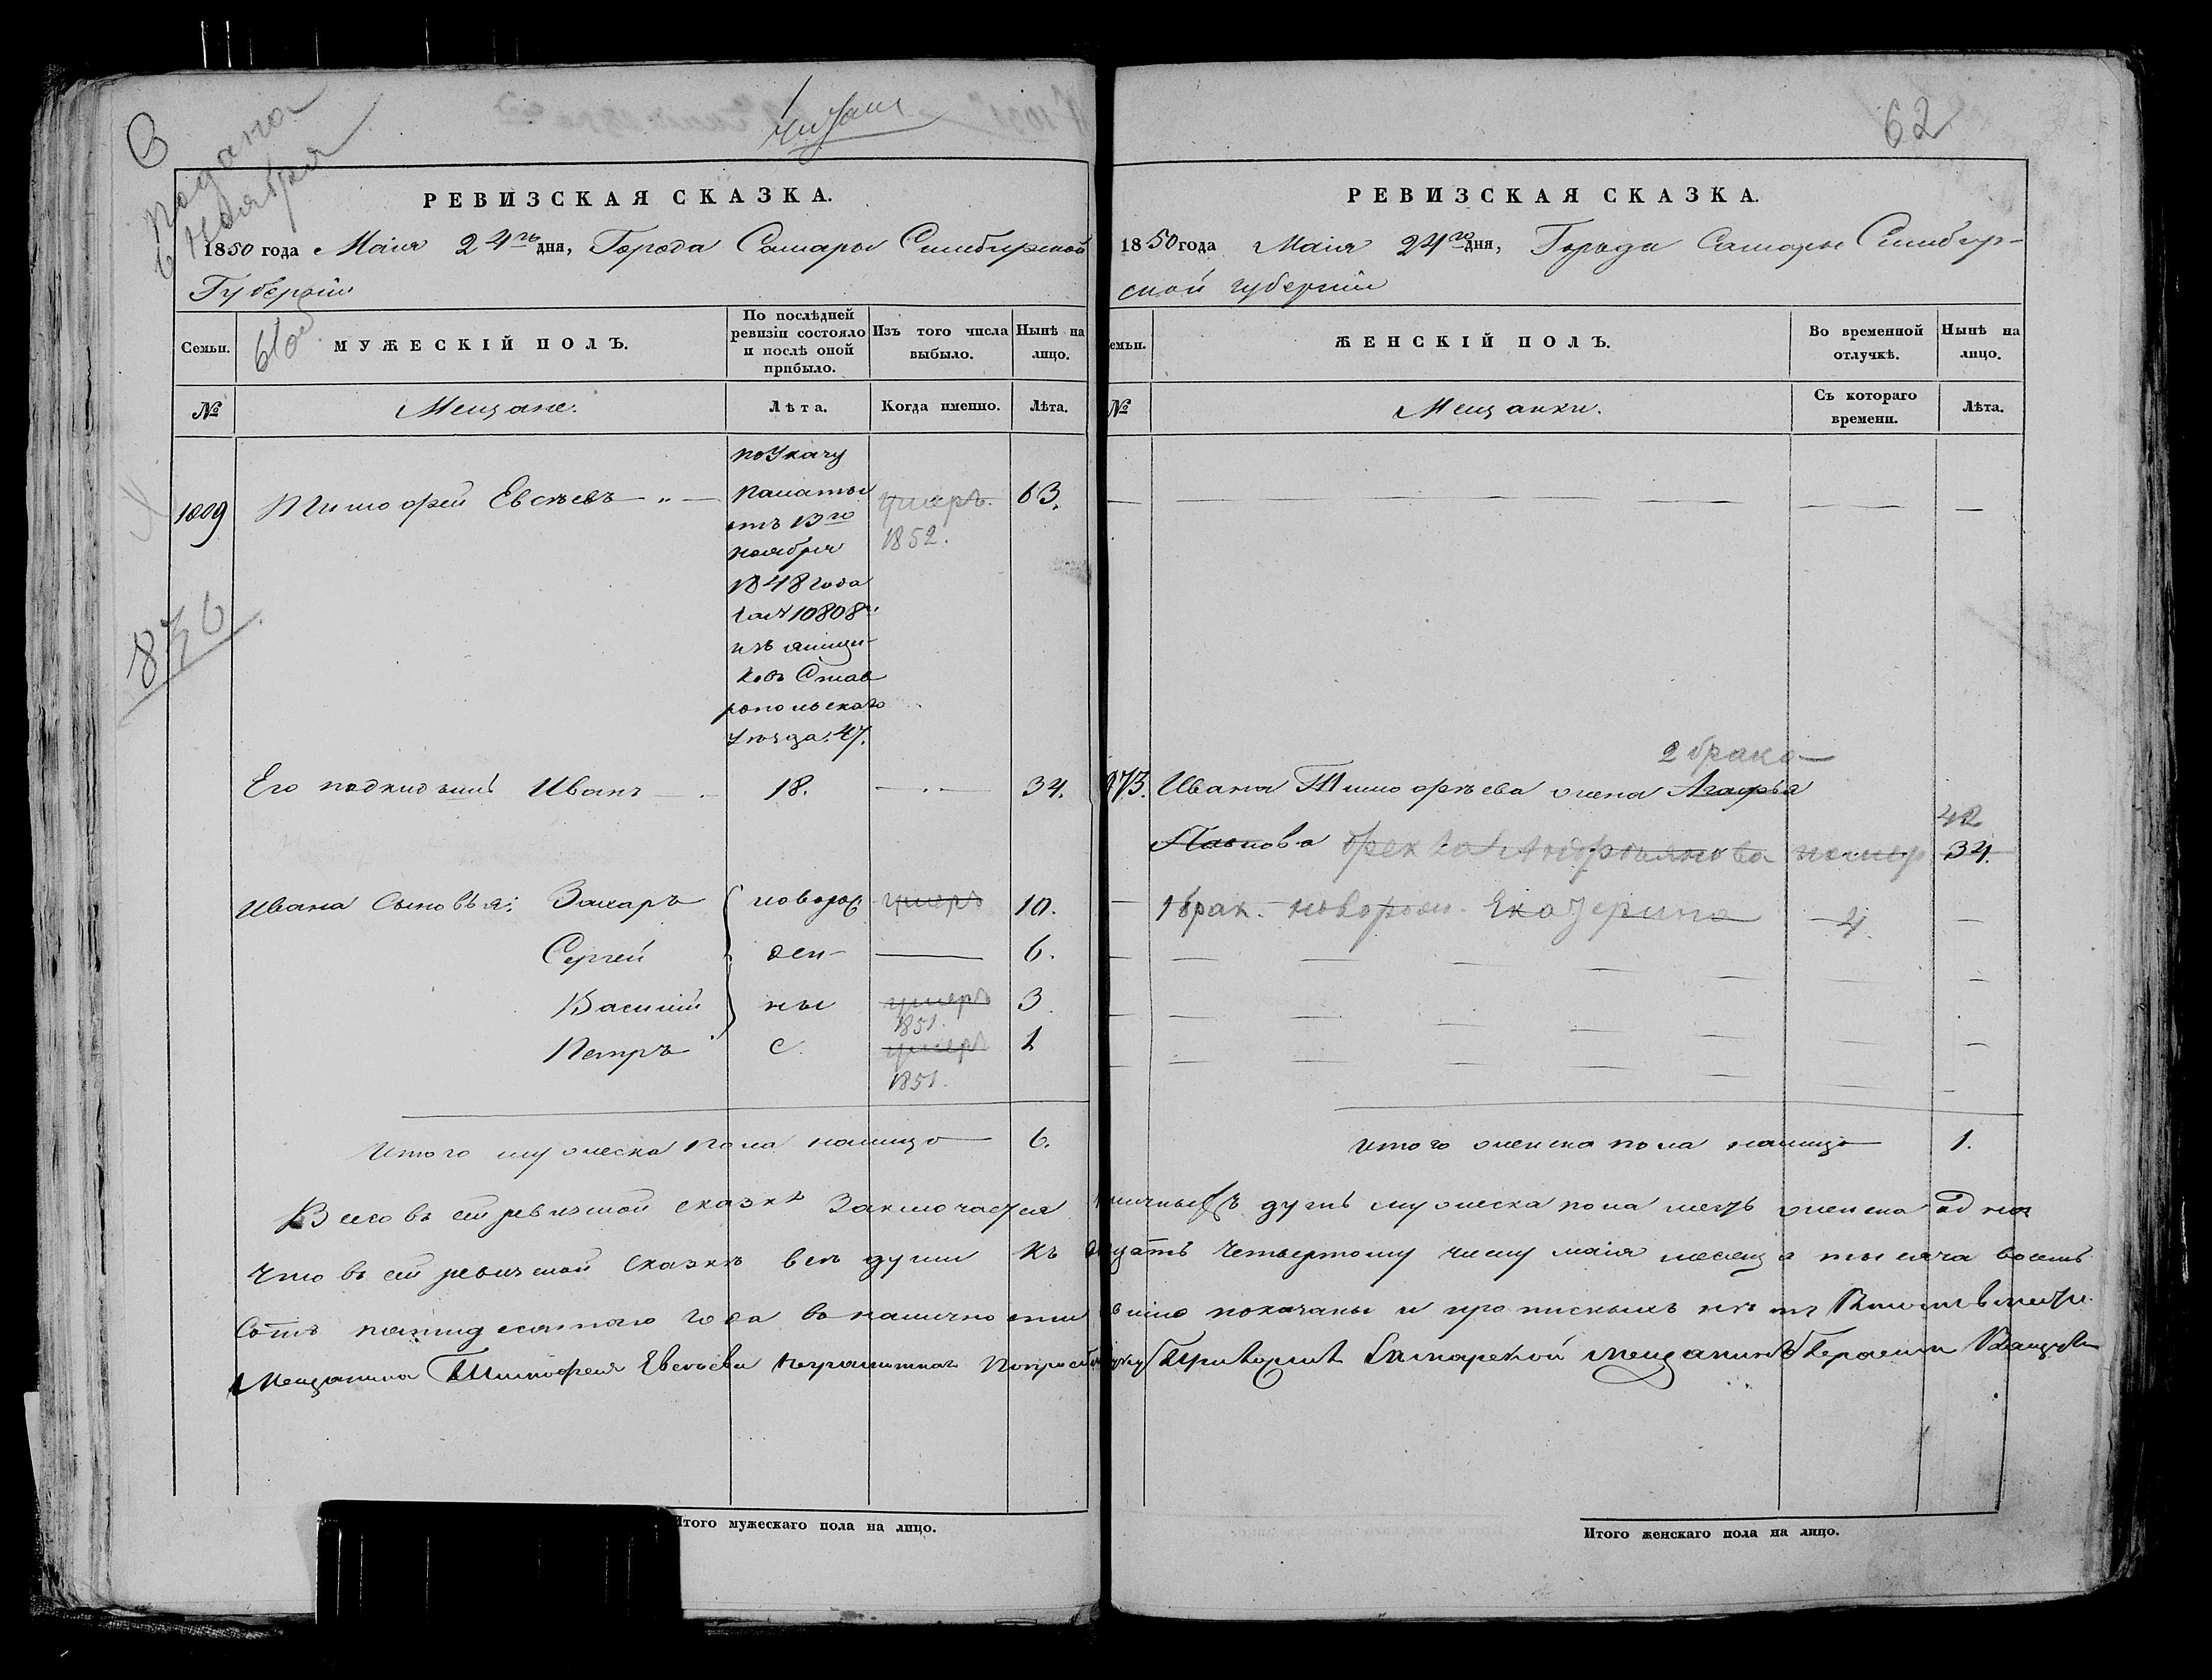 Подана
6 Ноября
РЕВИЗСКАЯ СКАЗКА.
1850 года Маія 24го дня, Города Самары Симбирской
Губерніи
Семьи.
МУЖЕСКІЙ ПОЛЪ.
По послѣдней ревизіи состояло и послѣ оной прибыло.
Изъ того числа выбыло.
Нынѣ на лицо.
№
Мещане.
Лѣта.
Когда именно.
Лѣта.
876
1009
Тимофей Евсѣевъ
по Указу
Палаты
отъ 13го
ноября
1848 года
за № 10808
изъ ямщи-
ковъ Став
ропольскаго
уѣзда. 47.
умеръ.
1852.
63.
Его подкидышъ Иванъ
18.
34.
Ивана сыновья: Захаръ
новорож
умеръ
10.
Сергей
ден-
6.
Василій
ны
умеръ
1851.
3
Петръ
с.
умеръ
1851.
1
Итого мужеска пола налицо 6.
Итого мужескаго пола на лицо.
62
РЕВИЗСКАЯ СКАЗКА.
1850 года Маія 24го дня, Города Самары Симбир-
ской губерніи
емьи.
ЖЕНСКІЙ ПОЛЪ.
Во временной отлучкѣ.
Нынѣ на лицо.
№
Мещанки.
Съ котораго времени.
Лѣта.
2 брака
Ивана Тимофѣева жена Агафья
42
Павлова
34.
1 брак. новорож. Екатерина
4
итого женска пола налицо 1.
Всего въ сей ревизской сказкѣ заключается наличныхъ душъ мужеска пола шесть женска одна
Что въ сей ревизской сказкѣ всѣ души къ двадцать четвертому числу маія месяца тысяча восемь
сотъ пятидесятого года въ наличности
показаны и прописныхъ нѣтъ
Мещанина Тимофея Евсѣева неграмотнаго по прозбѣ
Самарской мещанинъ Герасим
Итого женскаго пола на лицо.